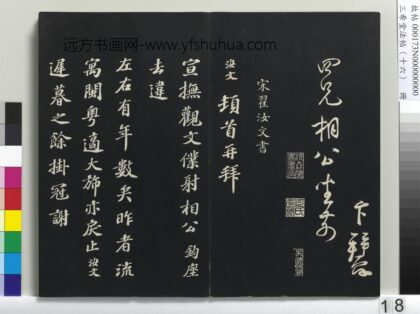 远方书画网-www.yfshuhua.com
三希堂法帖（十六） 册
四兄相公坐前
宋翟汝文書
汝文 頓首再拜
宣撫觀文僕射相公 鈞座
去違
左右有年數矣昨者流
寓閩粵適大旆亦戾止汝文
遲暮之餘掛冠謝
18